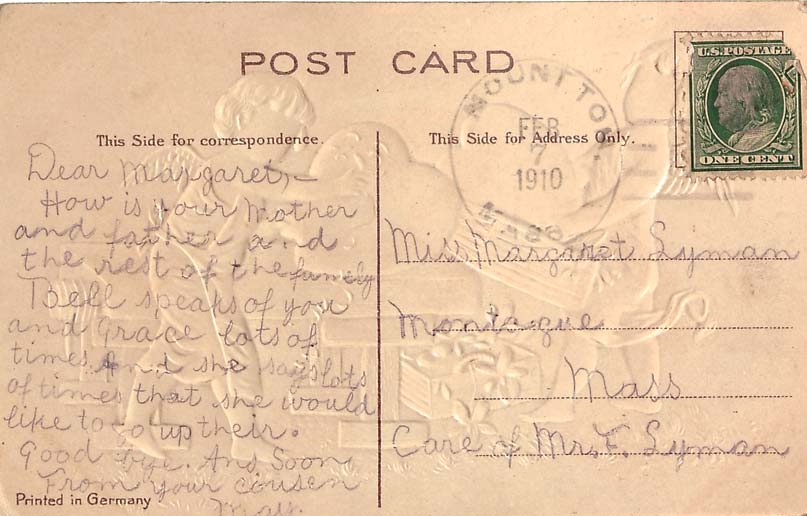 POST CARD
U.S. POSTAGE
ONE CENT
MOUNT TO
FEB
7
1910
MASS
This Side for correspondence.
Dear Margaret,—
How is your Mother
and father and
the rest of the family
Bell speaks of you
and Grace lots of
times. And she says lots
of times that she would
like to go up their.
Good bye. Ans Soon
From your cousen
May.
Printed in Germany
This Side for Address Only.
Miss Margaret Lyman
Montague
Mass
Care of Mr. F. Lyman